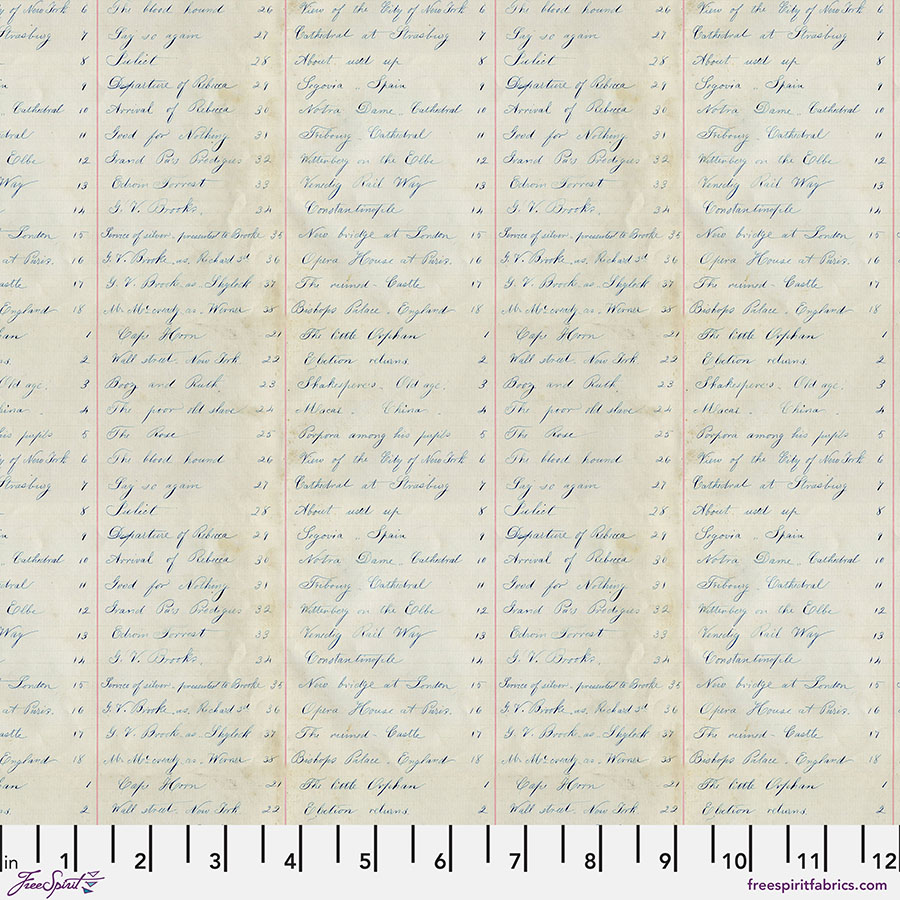 of New York 6 The blood hound 26 View of the City of New York 6 The blood hound 26 View of the City of New York 6
Strasburg 7 Say so again 27 Cathedral at Strasburg 7 Say so again 27 Cathedral at Strasburg 7
8 Juliet 28 About used up 8 Juliet 28 About used up 8
9 Departure of Rebecca 29 Segovia .. Spain 9 Departure of Rebecca 29 Segovia .. Spain 9
Cathedral 10 Arrival of Rebecca 30 Notra Dame. Cathedral 10 Arrival of Rebecca 30 Notra Dame. Cathedral 10
dral 11 Good for Nothing 31 Fribourg Cathedral 11 Good for Nothing 31 Fribourg Cathedral 11
Elbe 12 Grand Pa's Prodigies 32 Wittenberg on the Elbe 12 Grand Pa's Prodigies 32 Wittenberg on the Elbe 12
Way 13 Edwin Forrest 33 Venedig Rail Way 13 Edwin Forrest 33 Venedig Rail Way 13
14 G. V. Brooks. 34 Constantinople 14 G. V. Brooks. 34 Constantinople 14
London 15 of silver. presented to Brooke 35 New bridge at London 15 of silver. presented to Brooke 35 New bridge at London 15
at Paris. 16 G. V. Brooke. as. Richard 3d 36 Opera House at Paris. 16 G. V. Brooke. as. Richard 3d 36 Opera House at Paris. 16
Castle 17 G. V. Brooke as. Shylock 37 The ruined - Castle 17 G. V. Brooke as. Shylock 37 The ruined - Castle 17
England 18 Mr. McCready as. Werner 38 Bishops Palace. England 18 Mr. McCready as. Werner 38 Bishops Palace. England 18
han 1 Cape Horn 21 The little Orphan 1 Cape Horn 21 The little Orphan 1
s. 2 Wall street. New York 22 Election returns 2 Wall street. New York 22 Election returns. 2
Old age. 3 Booz and Ruth 23 Shakespere's. Old age. 3 Booz and Ruth 23 Shakespere's. Old age. 3
hina. 4 The poor old slave 24 Macai. China. 4 The poor old slave 24 Macai. China. 4
his pupils 5 The Rose 25 Porpora among his pupils 5 The Rose 25 Porpora among his pupils 5
y of New York 6 The blood hound 26 View of the City of New York 6 The blood hound 26 View of the City of New York 6
Strasburg 7 Say so again 27 Cathedral at Strasburg 7 Say so again 27 Cathedral at Strasburg 7
8 Juliet 28 About used up 8 Juliet 28 About used up 8
9 Departure of Rebecca 29 Segovia .. Spain 9 Departure of Rebecca 29 Segovia .. Spain 9
Cathedral 10 Arrival of Rebecca 30 Notra Dame. Cathedral 10 Arrival of Rebecca 30 Notra Dame. Cathedral 10
dral 11 Good for Nothing 31 Fribourg Cathedral 11 Good for Nothing 31 Fribourg Cathedral 11
Elbe 12 Grand Pa's Prodigies 32 Wittenberg on the Elbe 12 Grand Pa's Prodigies 32 Wittenberg on the Elbe 12
Way 13 Edwin Forrest 33 Venedig Rail Way 13 Edwin Forrest 33 Venedig Rail Way 13
14 G. V. Brooks. 34 Constantinople 14 G. V. Brooks. 34 Constantinople 14
London 15 of silver. presented to Brooke 35 New bridge at London 15 of silver. presented to Brooke 35 New bridge at London 15
at Paris. 16 G. V. Brooke. as. Richard 3d 36 Opera House at Paris. 16 G. V. Brooke. as. Richard 3d 36 Opera House at Paris. 16
Castle 17 G. V. Brooke as. Shylock 37 The ruined - Castle 17 G. V. Brooke as. Shylock 37 The ruined - Castle 17
England 18 Mr. McCready as. Werner 38 Bishops Palace. England 18 Mr. McCready as. Werner 38 Bishops Palace. England 18
han 1 Cape Horn 21 The little Orphan 1 Cape Horn 21 The little Orphan 1
s. 2 Wall street. New York 22 Election returns 2 Wall street. New York 22 Election returns. 2
in 1 2 3 4 5 6 7 8 9 10 11 12
FreeSpirit
freespiritfabrics.com